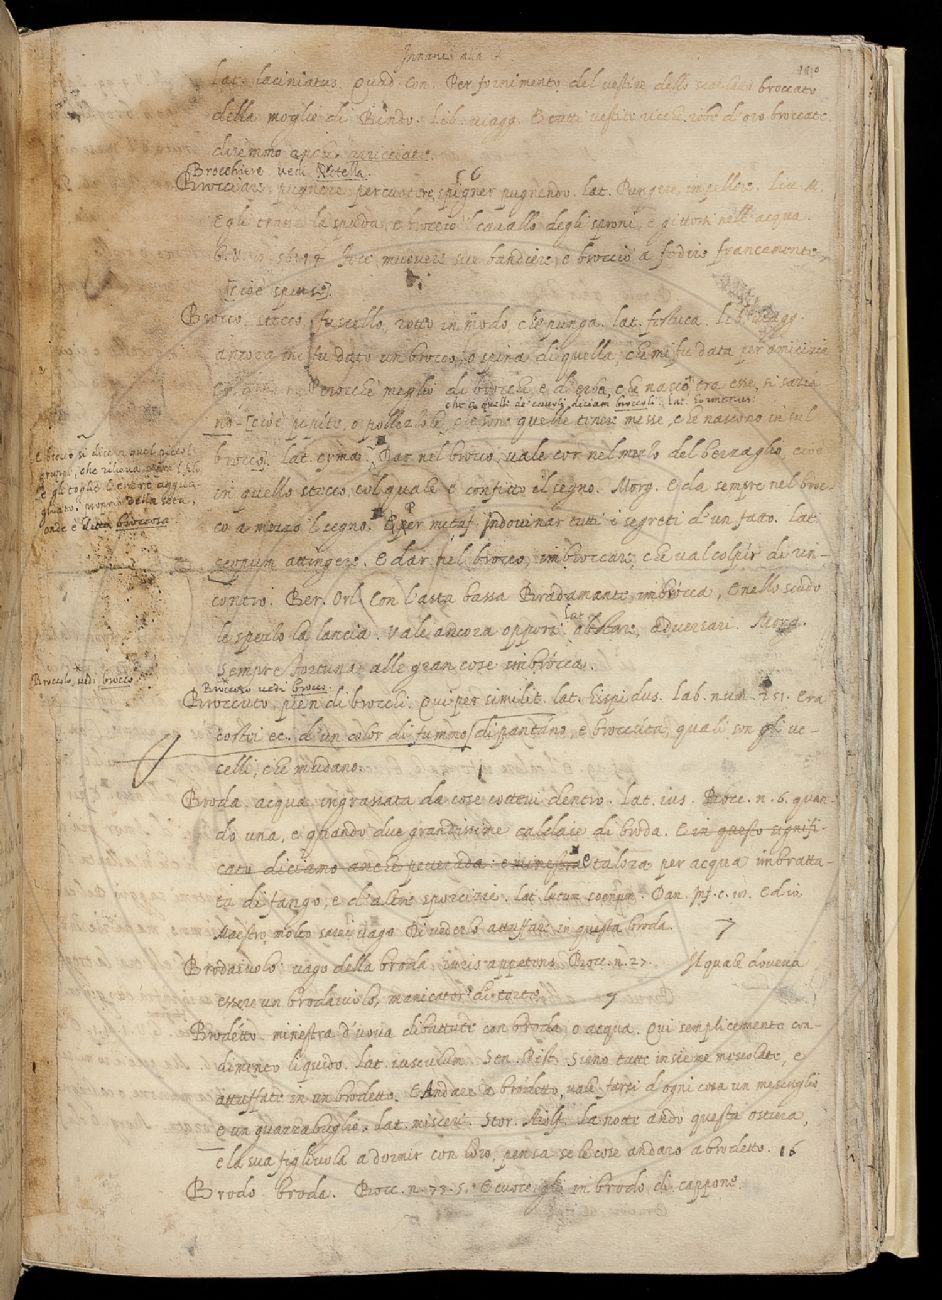 Innanzi alla
110
lat. laciniatus. Quad. Con. Per fornimento del vestire dello scarlatto broccato
della moglie di Bindo. Lib. viagg. E tutti vestiti
diremmo anche arricciare.
Brocchiere vedi Rotella.
Brocciare, pugnere, percuotere, spigner pugnendo. lat. Pungere, impellere. Liv. M.
Egli trasse la spada, e brocciò il cavallo degli sproni, e gittossi nell'acqua.
fece muovere sue bandiere, e brocciò a fedire francamente
[cioè spinse].
Brocco, stecco, fuscello, rotto in modo, che punga. lat. festuca. Lib. viagg.
ancora mi fu dato un brocco, o spina di quella che mi fu data per amicizia
meglio di brocchi, e d'erba, che nasce tra essi, si sazia-
che a quelli de' cavoli diciam broccoli. lat.
no [cioè pipite, o pollezzole, che sono quelle tenere messe, che nascono in sul
brocco]. lat. cyma. Dar nel brocco, vale cor nel mezzo del berzaglio, cioè
in quello stecco, col quale è confitto il segno. Morg. E da sempre nel broc-
co a mezzo 'l segno. E per metaf. Indovinar tutti i segreti d'un fatto. lat.
scopum attingere. E dar nel brocco, imbroccare, che val colpir di rin-
contro. Ber. Orl. Con l'asta bassa Bradamante imbrocca, E nello scudo
le spezzò la lancia. Vale ancora opporsi. lat. adversari. Morg.
Sempre fortuna alle gran cose imbrocca.
E brocco si dice a quel piccol
gruppo, che rilieva sopra 'l filo,
e gli toglie l'essere aggua-
gliato: proprio della seta,
onde è detta broccosa.
Broccolo, vedi brocco.
Broccoso vedi brocco.
Broccuto, pien di brocchi. Qui per similit. lat. hispidus. Lab. num. 251. Era
costei ec. d'un color di fummo [di pantano, e broccuta, quali son gli uc-
celli, che mudano.
Broda. acqua ingrassata da cose cottevi dentro. Lat. ius. Bocc. n. 6. quan-
do una, e quando due grandissime caldaie di broda. E in questo signifi-
cato diciamo anche peverada: e minestra. E talora per acqua imbratta-
ta di fango, e d'altre sporcizie. lat. lutum coenum. Dan. Inf. c. Ed io
Maestro molto sarei vago Di vederlo attuffare in questa broda. 7
Brodaiuolo, vago della broda. iuris appetens. Bocc. n. 27. Il quale doveva
essere un brodaiuolo, manicator di torte. 7
Brodetto. minestra d'uova dibattute con broda o acqua. Qui semplicemente con-
dimento liquido. lat. iusculum. Sen. Pist. Sieno tutte insieme mescolate, e
attuffate in un brodetto. E Andare a brodetto, vale farsi d'ogni cosa un mescuglio
e un guazzabuglio. lat. misceri. Stor. Aiolf. La notte andò questa ostiera,
e la sua figliuola a dormir con loro, pensa se le cose andaro a brodetto. 16
Brodo broda. Bocc. n. 73. 5. E cuocergli in brodo di capponi.